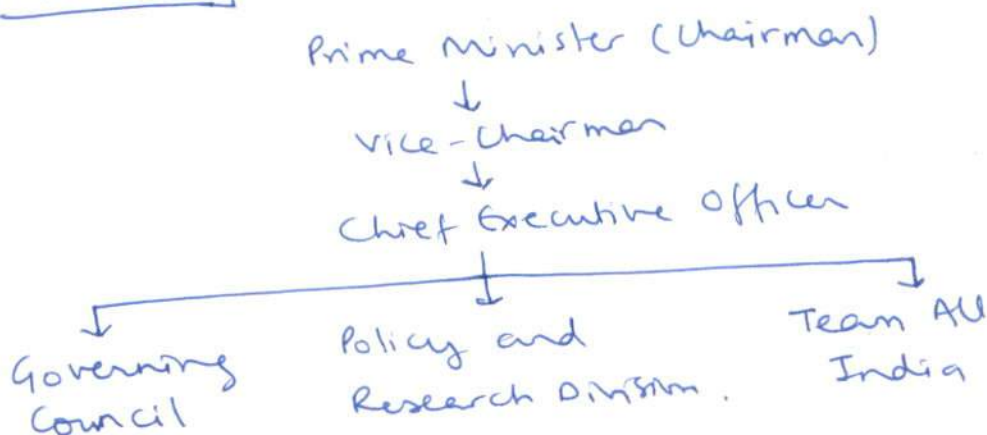 Prime Minister (Chairman)
Vice-Chairman
Chief Executive Officer
Governing
Council
Policy and
Research Division.
Team All
India